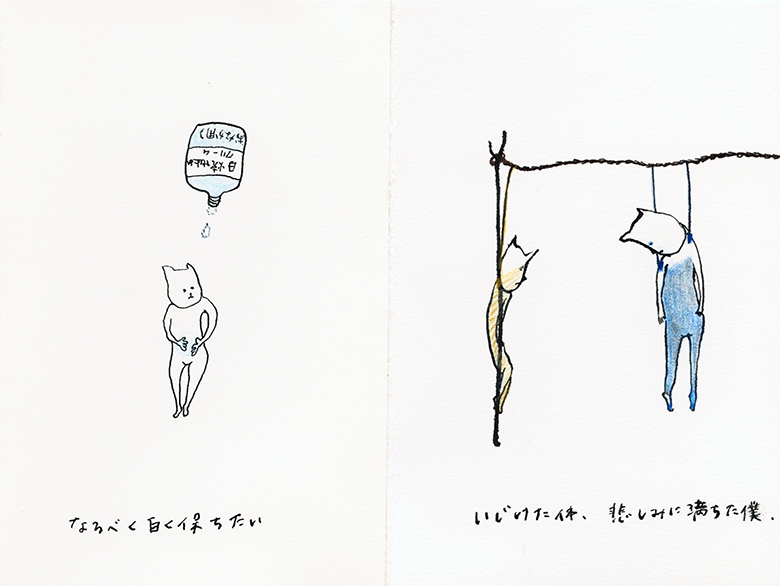 日焼け止め
クリーム
(おなか用)
なるべく白く保ちたい
いじけた体、悲しみに満ちた僕.